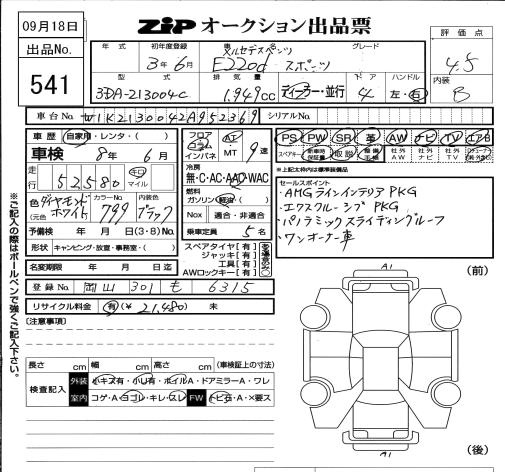 09月18日
ZIP オークション出品票
出品No.
541
年式 初年度登録 車名 グレード
3年6月 メルセデスベンツ E220d スポーツ
型式 排気量 ドア ハンドル
3DA-213004C 1.949cc ディーラー・並行 4 左・右
評価点
4.5
内装
B
車台No. W1K2130042A952369 シリアルNo.
車歴 自家用・レンタ・( )
車検 8年 6月
走行 52580 キロ マイル
外色 ダイヤモンドホワイト (元色) カラーNo. 799 内装色 ブラック
予備検 年 月 日(3・8)No.
形状 キャンピング・放置・事務室・( )
名変期限 年 月 日迄
フロア コラム インパネ AT・MT 9速
冷房
無・C・AC・AAC・WAC
燃料
ガソリン(軽油)( )
Nox 適合・非適合
乗車定員 5名
スペアタイヤ[有]
ジャッキ[有]
工具[有]
AWロックキー[有]
PS PW SR 革 AW ナビ TV エアB
スペアキー 新車時保証書 取説 整備手帳 社外AW 社外ナビ 社外TV
※上記太枠内は標準装備品
セールスポイント
・AMGラインインテリアPKG
・エクスクルーシブPKG
・パノラミックスライディングルーフ
・ワンオーナー車
登録No. 岡山 301 も 6315
リサイクル料金 有(¥ 21,480) 未
[注意事項]
※ご記入の際はボールペンで強くご記入下さい。
長さ cm 幅 cm 高さ cm (車検証上の寸法)
検査記入 外装 小キズ有・小凹有・ホイルA・ドアミラーA・ワレ
室内 コゲ・A・ヨゴレ・キレ・スレ FW トビ石・A・×要ス
(前)
A1
A1
(後)